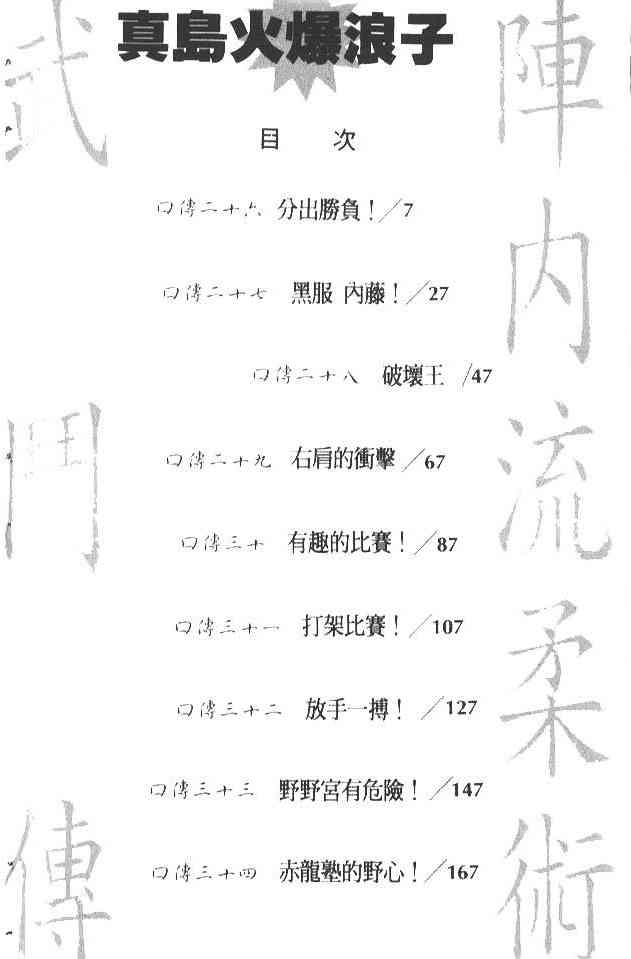 真島火爆浪子
目 次
口傳二十六 分出勝負！／7
口傳二十七 黑服 內藤！／27
口傳二十八 破壞王 ／47
口傳二十九 右肩的衝擊 ／67
口傳三十 有趣的比賽！／87
口傳三十一 打架比賽！／107
口傳三十二 放手一搏！／127
口傳三十三 野野宮有危險！／147
口傳三十四 赤龍塾的野心！／167
陣內流柔術
武鬥傳